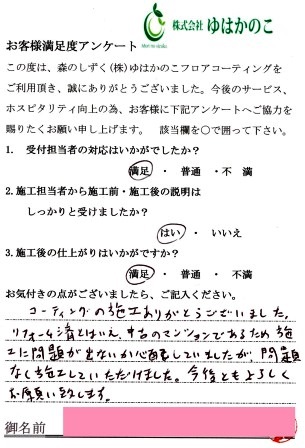 株式会社 ゆはかのこ
お客様満足度アンケート
この度は、森のしずく(株)ゆはかのこフロアコーティングを
ご利用頂き、誠にありがとうございました。今後のサービス、
ホスピタリティ向上の為、お客様に下記アンケートへご協力を
賜りたくお願い申し上げます。 該当欄を〇で囲って下さい。
1. 受付担当者の対応はいかがでしたか?
満足 ・ 普通 ・不 満
2.施工担当者から施工前・施工後の説明は
しっかりと受けましたか?
はい ・ いいえ
3.施工後の仕上がりはいかがですか?
満足 ・ 普通 ・ 不満
お気付きの点がございましたら、ご記入ください。
コーティングの施工ありがとうございました。
リフォーム済とはいえ、中古のマンションであるため施
工に問題が出ないか心配していましたが、問題
なく施工していただけました。今後ともよろしく
お願い致します。
御名前